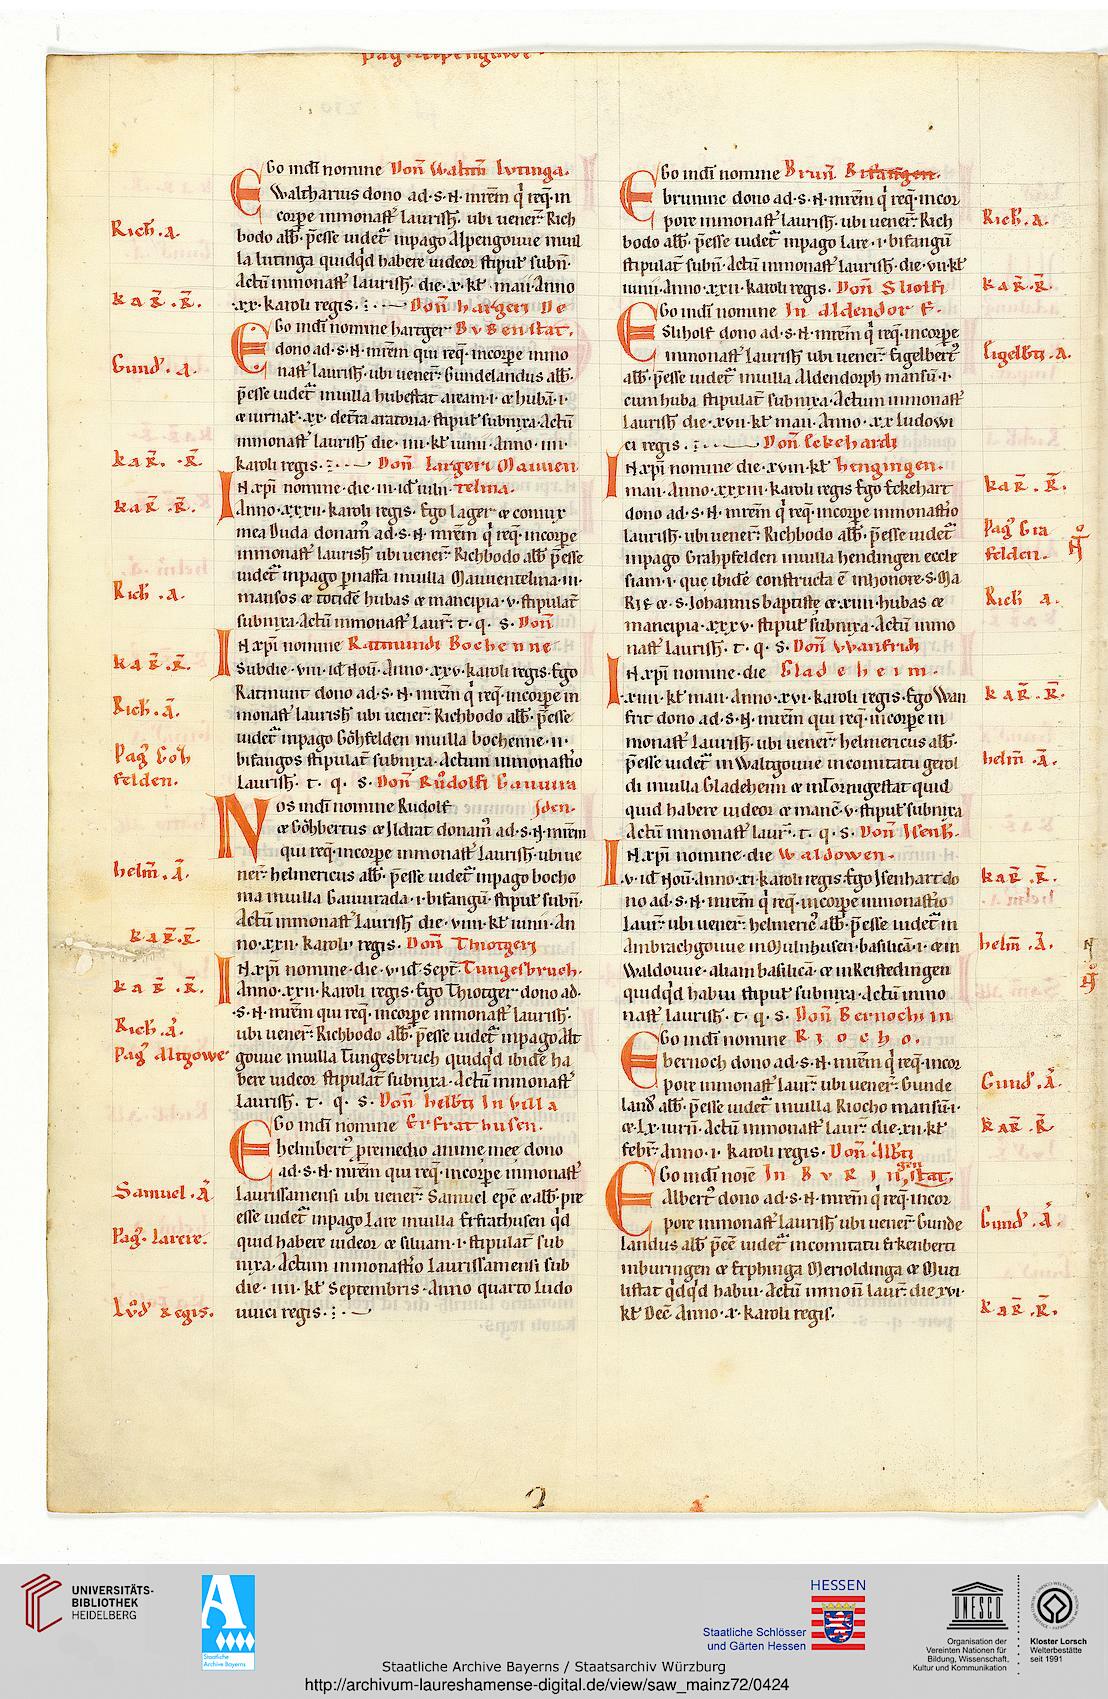 pag. Alpengowe.
Ego indi nomine Don Walthn Lutinga.
Waltharius dono ad · s · N · mrem q req. in
corpe inmonast laurish. ubi uener Rich
bodo abb. pesse uidet inpago Alpengouue inuil
la lutinga quidqd habere uideor stiput subn.
Actu inmonast laurish. die · x · kt maii · Anno
·xx· karoli regis. Don hargeri De
Ego indi nomine hartger BvBenstat.
dono ad · s · N · mrem qui req. incorpe inmo
nast laurish. ubi uener Gundelandus abb.
pesse uidet inuilla hubestat aream · i · & hubam · i ·
& iurnat · xx · de tra aratoria stiput subnixa · Actu
inmonast laurish die · iiii · kt iunii · Anno · iii ·
karoli regis. Don Lageri Mauuen
IN xpi nomine · die · iii · id iulii · telina.
Anno · xxxii · karoli regis. Ego Lager & coniux
mea Duda donam ad · s · N · mrem q req. incorpe
inmonast laurish ubi uener Richbodo abb pesse
uidet inpago pnaffa inuilla Mauuentelina · iii ·
mansos & totide hubas & mancipia · v · stipulat
subnixa · Actu inmonast laur. t. q. s. Don
IN xpi nomine Ratmundi Bochenne
Subdie · viii · id Nou · Anno · xxv · karoli regis · Ego
Ratmunt dono ad · s · N · mrem q req. incorpe in
monast laurish ubi uener Richbodo abb. pesse
uidet inpago Gohfelden inuilla bochenne · ii ·
bifangos stipulat subnixa. Actu inmonastio
Laurish. t. q. s. Don Rudolfi Gauuira
Nos indi nomine Rudolf
& Gohbertus & Ildrat donam ad · s · N · mrem
qui req. incorpe inmonast laurish · ubi ue
ner helmericus abb. pesse uidet inpago bocho
ma inuilla Gauurada · i · bifangu stiput subn.
Actu inmonast laurish die · viiii · kt iunii · An
no · xxii · karoli regis. Don Thiotgeri
IN xpi nomine · die · v · id Sept Tungesbruch.
Anno · xxii · karoli regis · Ego Thiotger dono ad ·
· s · N · mrem qui req. incorpe inmonast laurish.
ubi uener Richbodo abb. pesse uidet inpago Alt
gouue inuilla Tungesbruch quidqd ibide ha
bere uideor stipulat subnixa. Actu inmonast
laurish. t. q. s. Don helbti In villa
Ego indi nomine Erfrathusen.
helmbert premedio anime mee dono
ad · s · N · mrem qui req. incorpe inmonast
laurissamensi ubi uener Samuel epc & abb. pre
esse uidet inpago Lare inuilla Erfrathusen qd
quid habere uideor & siluam · i · stipulat sub
nixa. Actum inmonastio laurissamensi sub
die · iiii · kt Septembris · Anno quarto ludo
uuici regis.
Rich. a.
kaR. R.
Gund. a.
kaR. R.
kaR. R.
Rich. a.
kaR. R.
Rich. a.
Pag Goh
felden.
helm. A.
kaR. R.
kaR. R.
Rich. A.
Pag Altgowe
Samuel. A
Pag. Lareie.
Lud Regis.
Ego indi nomine Brun Bifangen.
brunne dono ad · s · N · mrem q req. incor
pore inmonast laurish. ubi uener Rich
bodo abb. pesse uidet inpago Lare · i · bifangu
stipulat subn. Actu inmonast laurish. die · vii · kt
iunii · Anno · xxii · karoli regis. Don Sliolfi
Ego indi nomine In Aldendorf.
Sliholf dono ad · s · N · mrem q req. incorpe
inmonast laurish ubi uener Eigelbert
abb. pesse uidet inuilla Aldendorph mansu · i ·
cum huba stipulat subnixa. Actum inmonast
laurish die · xvii · kt maii · Anno · xx · Ludowi
ci regis. Don Eckehardi
IN xpi nomine die · xviii · kt hengingen.
maii · Anno · xxxiii · karoli regis Ego Eckehart
dono ad · s · N · mrem q req. incorpe inmonastio
laurish · ubi uener Richbodo abb. pesse uidet
inpago Grahpfelden inuilla hendingen eccle
siam · i · que ibide constructa e inhonore · s · Ma
Rie & · s · Johannis baptiste & · xiii · hubas &
mancipia · xxx · v · stiput subnixa · Actu inmo
nast laurish. t. q. s. Don VVanfridi
IN xpi nomine · die Gladeheim.
· xiiii · kt maii · Anno · xvi · karoli regis · Ego Wan
frit dono ad · s · N · mrem qui req. incorpe in
monast laurish · ubi uener helmericus abb.
pesse uidet in Waltgouue incomitatu gerol
di inuilla Gladeheim & inToringestat quid
quid habere uideor & manc · v · stiput subnixa
Actu inmonast laur. t. q. s. Don Isenh.
IN xpi nomine · die Waldowen.
· v · id Nou · anno · xi · karoli regis · Ego Isenhart do
no ad · s · N · mrem q req. incorpe inmonastio
laur. ubi uener helmeric abb. pesse uidet in
Ambrachgouue inMulnhusen · basilica · i · & in
Waldouue · aliam basilica & inReistedingen
quidqd habui stiput subnixa · Actu inmo
nast laurish. t. q. s. Don Bernochi in
Ego indi nomine Riocho.
bernoch dono ad · s · N · mrem q req. incor
pore inmonast laur. ubi uener Gunde
land abb. pesse uidet inuilla Riocho mansu · i ·
& · Lx · iurn. Actu inmonast laur. die · xii · kt
febr. anno · i · karoli regis. Don Albti
Ego indi noie In BvRingenstat.
Albert dono ad · s · N · mrem q req. incor
pore inmonast laurish ubi uener Gunde
landus abb. pee uidet incomitatu Erkenberti
inburingen & Erphinga Merioldinga & Muti
listat qdqd habui. Actu inmon laur. die xvi ·
kt Dec. Anno · x · karoli regis.
Rich. a.
kaR. R.
Eigelbti. a.
kaR. R.
Pag Gra
felden.
Rich a.
kaR. R.
helm. A.
kaR. R.
helm. A.
Gund. A.
kaR. R
Gund. A.
kaR. R.
UNIVERSITÄTS-
BIBLIOTHEK
HEIDELBERG
Staatliche
Archive Bayerns
HESSEN
Staatliche Schlösser
und Gärten Hessen
UNESCO
Organisation der
Vereinten Nationen für
Bildung, Wissenschaft,
Kultur und Kommunikation
Kloster Lorsch
Welterbestätte
seit 1991
Staatliche Archive Bayerns / Staatsarchiv Würzburg
http://archivum-laureshamense-digital.de/view/saw_mainz72/0424